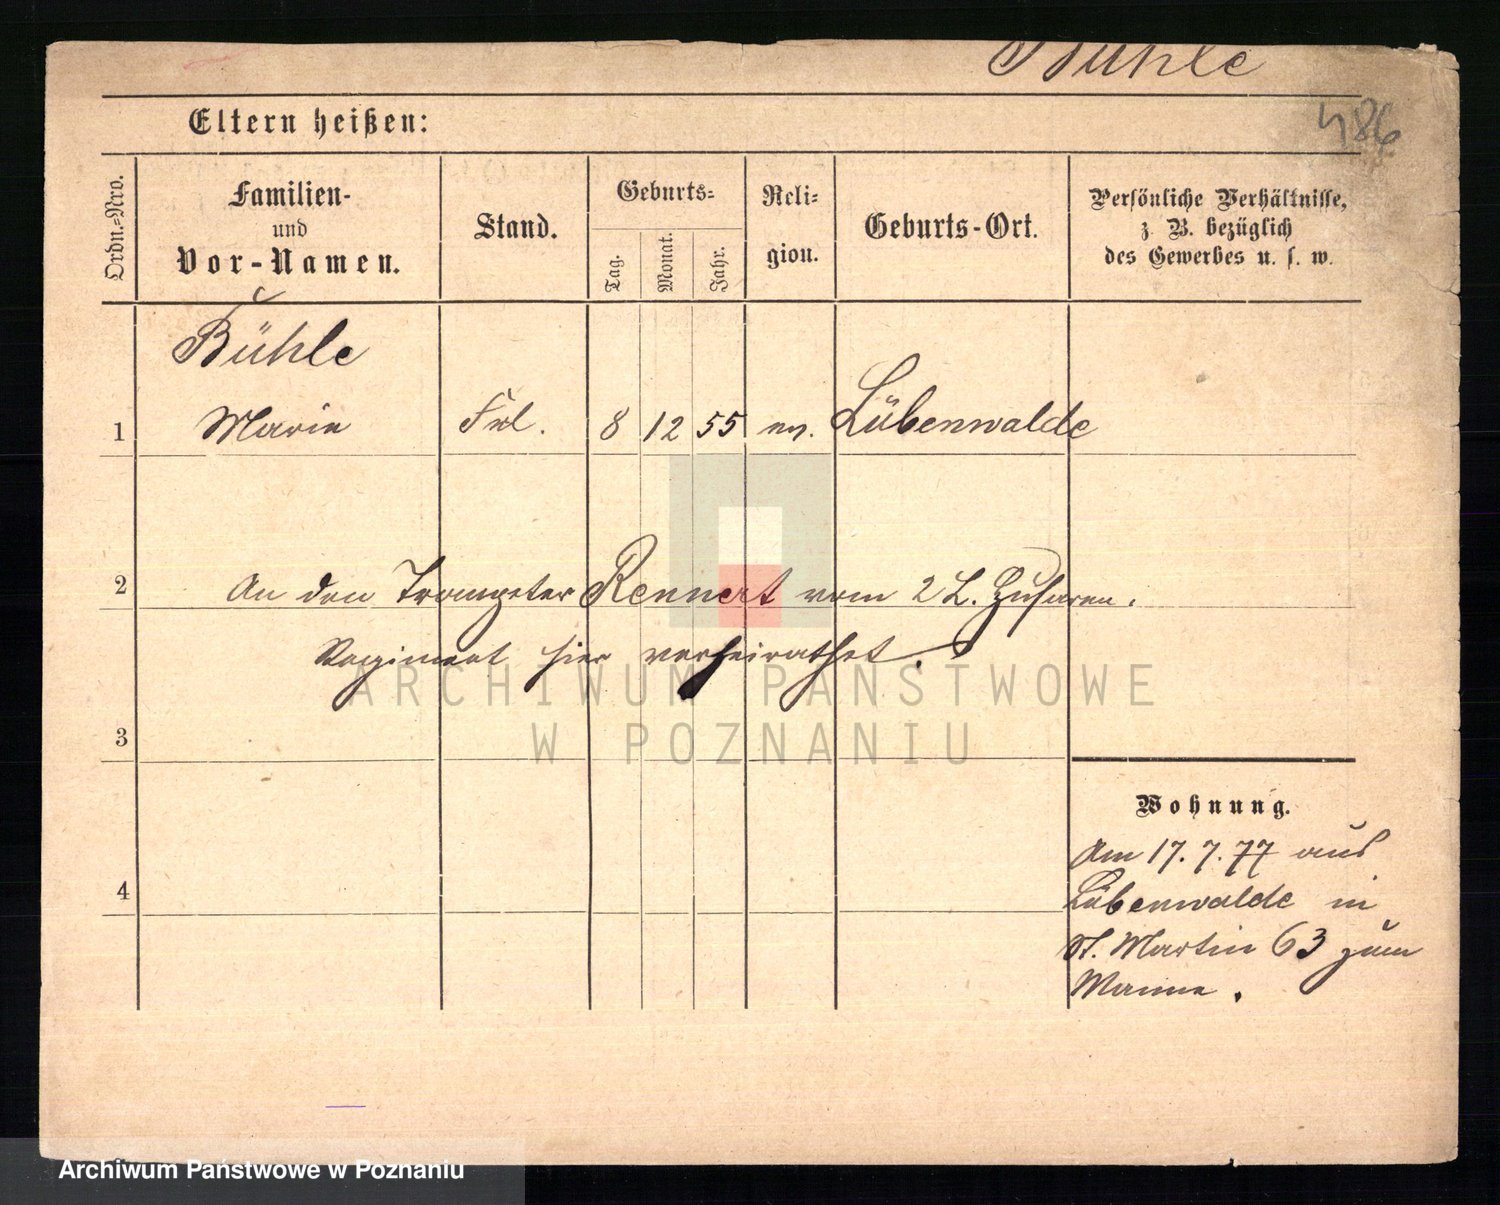 Bühle
486
Eltern heißen:
Ordn.-Nro.
Familien-
und
Vor-Namen.
Stand.
Geburts-
Tag.
Monat.
Jahr.
Reli-
gion.
Geburts-Ort.
Persönliche Verhältnisse,
z B. bezüglich
des Gewerbes u. s. w.
Bühle
1 Marie Frl. 8 12 55 ev. Lübenwalde
2 An den Trompeter Rennert vom 2 L. Husaren.
Regiment hier verheirathet.
3
Wohnung.
Am 17.7.77 aus
4
Lübenwalde in
St. Martin 63 zum
Manne.
ARCHIWUM PAŃSTWOWE
W POZNANIU
Archiwum Państwowe w Poznaniu